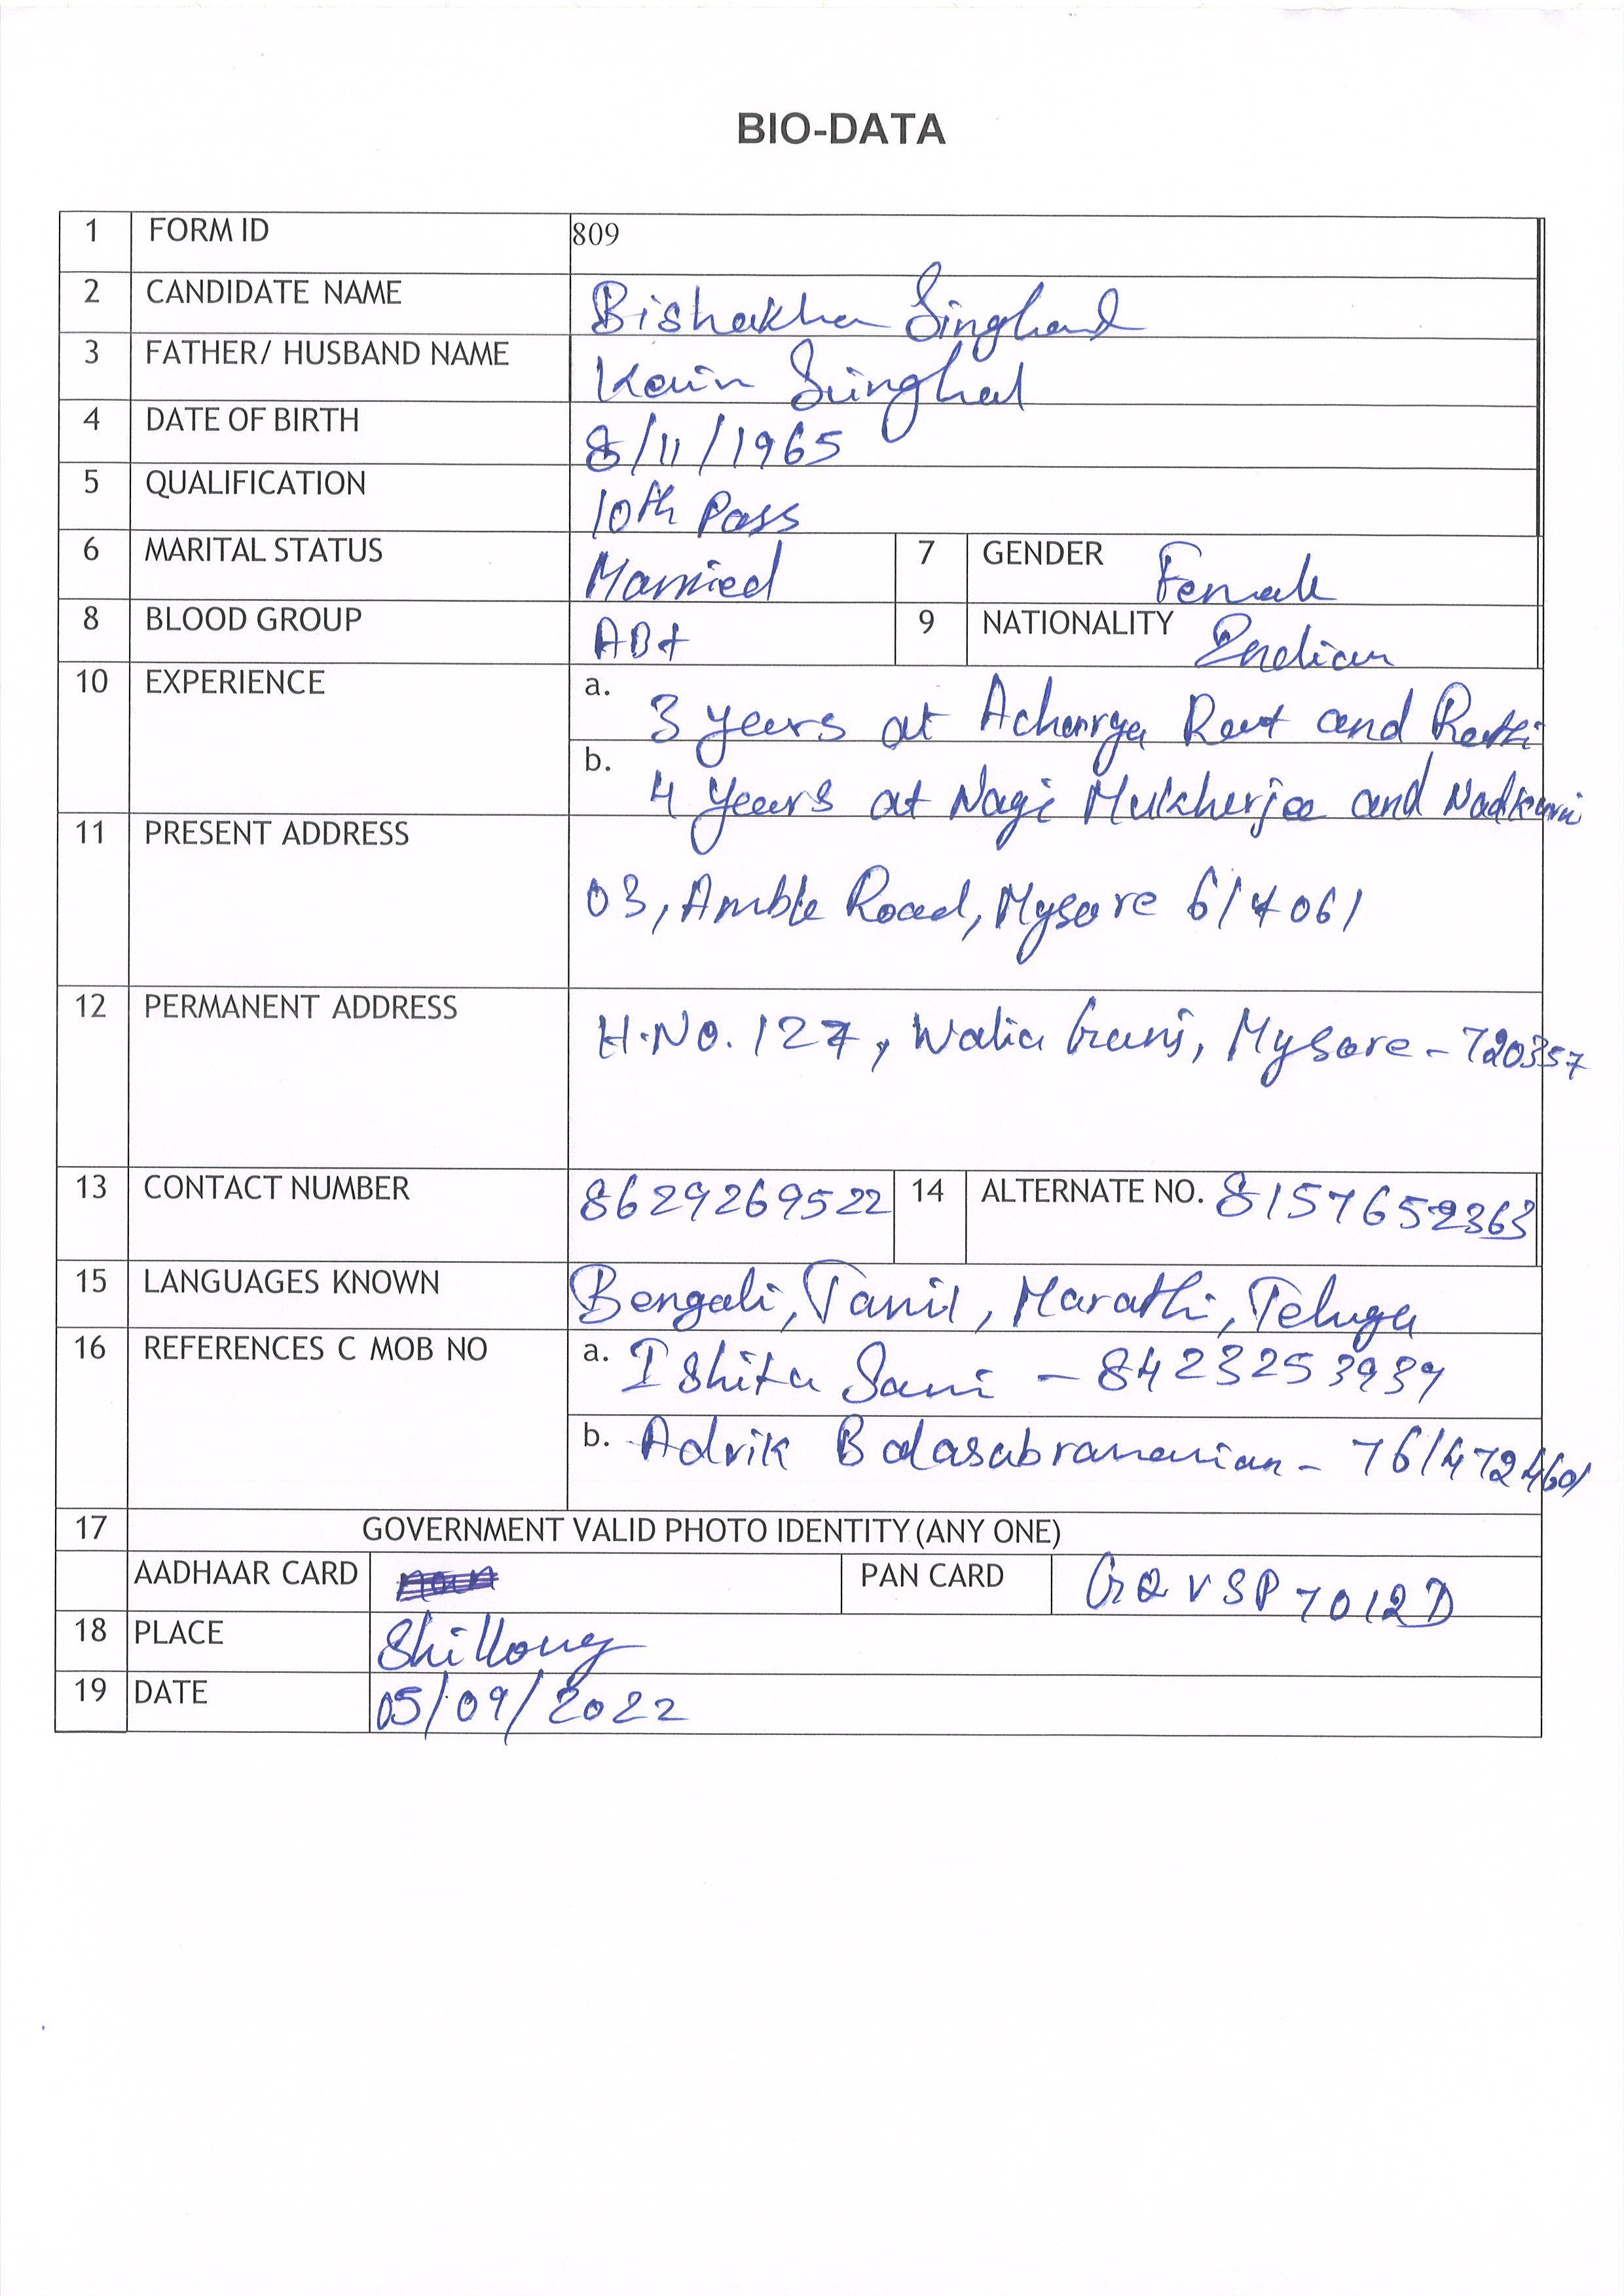 BIO-DATA
1 FORM ID 809
2 CANDIDATE NAME Bishakha Singhal
3 FATHER/ HUSBAND NAME Singhal
4 DATE OF BIRTH 8/11/1965
5 QUALIFICATION 10th Pass
6 MARITAL STATUS Married 7 GENDER Female
8 BLOOD GROUP AB+ 9 NATIONALITY Indian
10 EXPERIENCE a. 3 years at Acharya Raut and Rathi
b. 4 years at Nagi Mukherjee and Nadkarni
11 PRESENT ADDRESS
03, Amble Road, Mysore 614061
12 PERMANENT ADDRESS H.NO. 127, Walia Ganj, Mysore - 720357
13 CONTACT NUMBER 8629269522 14 ALTERNATE NO. 8157652363
15 LANGUAGES KNOWN Bengali, Tamil, Marathi, Telugu
16 REFERENCES C MOB NO a. Ishita Sani - 8423253939
b. Advik Balasubramanian - 7614724601
17 GOVERNMENT VALID PHOTO IDENTITY (ANY ONE)
AADHAAR CARD PAN CARD GQVSP7012D
18 PLACE Shillong
19 DATE 05/09/2022